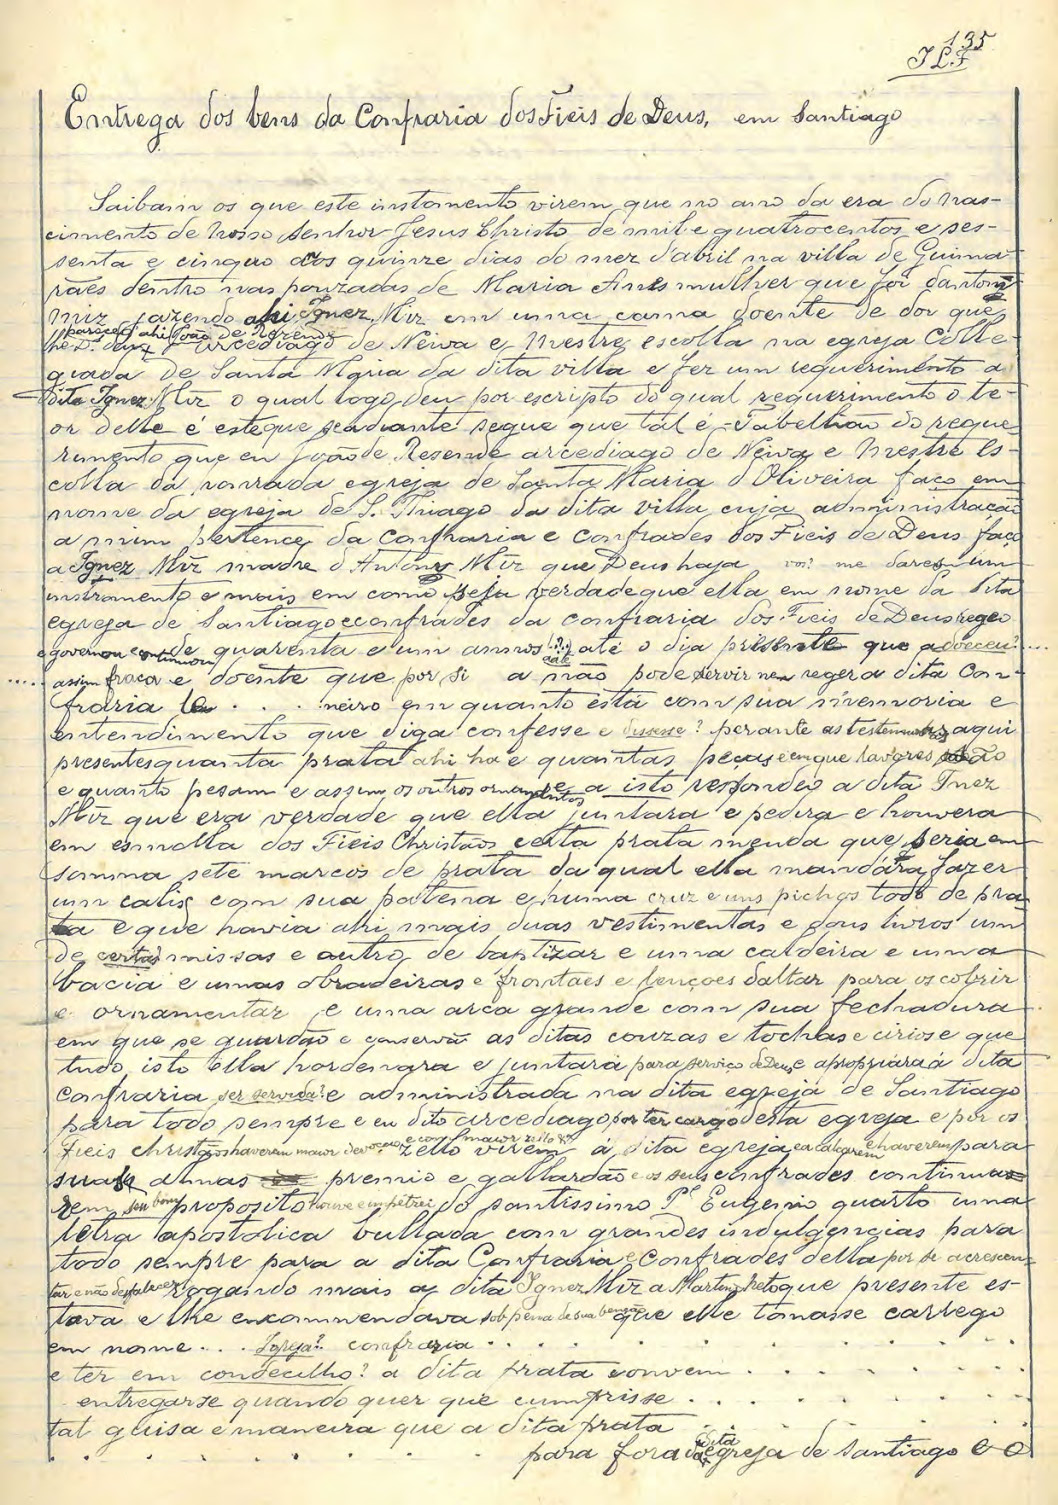 135
J L. F
Entrega dos bens da Confraria dos Fieis de Deus, em Santiago
Saibam os que este instomento virem que no ano da era do nas-
cimento de Nosso Senhor Jesus Christo de mil e quatrocentos e ses-
senta e cinquo aos quinze dias do mez d'abril na villa de Guima
rães dentro nas pouzadas de Maria Anes mulher que foi dantom
Miz jazendo ahi Ignez Miz em uma cama doente de dor que
pareceu ahi João de Rezende
lhe D. deu arcediago de Neiva e Mestre escolla na egreja Colle-
guada de Santa Maria da dita villa e fez um requerimento a
dita Ignez Miz o qual logo deu por escripto do qual requerimento o te-
or delle é este que ao adiante segue que tal é - Tabelhão do reque
rimento que eu João de Resende arcediago de Neiva e Mestre Es-
colla da honrada egreja de Santa Maria d Oliveira faço em
nome da egreja de S. Thiago da dita villa cuja administração
a mim pertence, da Confraria e Confrades dos Fieis de Deus faço
a Ignez Miz madre d'Antony Miz que Deus haja vos? me dares um
instromento e mais em como seja verdade que ella em nome da dita
egreja de Santiago e confrades da confraria dos Fieis de Deus regeo
e governou e continuou de quarenta e um annos (?) até o dia presente que adoeceu? ...
..... assim fraca e doente que por si a não pode servir nem reger a dita Con-
fraria . . . neiro em quanto está com sua memoria e
entendimento que diga confesse e dissesse? perante as testemunhas aqui
presentes quanta prata ahi ha e quantas peças e em que lavores são
e quanto pesam e assim os outros ornamentos e a isto respondeo a dita Inez
Miz que era verdade que ella juntara e pedira e houvera
em esmolla dos Fieis Christãos certa prata meuda que seria em
somma sete marcos de prata da qual ella mandára fazer
um calis com sua patena e huma cruz e uns pichos todo de pra
ta e que havia ahi mais duas vestimentas e dous livros um
de certas missas e outro de baptizar e uma caldeira e uma
bacia e umas obradeiras e frontaes e lençoes d'altar para os cobrir
e ornamentar e uma arca grande com sua fechadura
em que se guardão e conservão as ditas couzas e tochas e cirios e que
tudo isto ella hordenara e juntara para serviço de Deus e apropriara á dita
Confraria ser servida? e administrada na dita egreja de Santiago
para todo sempre e eu dito arcediago por ter cargo desta egreja e por os
Fieis christãos haverem maior devoção e com maior zello virem á dita egreja e a calçarem e haverem para
suas almas premio e gallardão e os seus confrades continua
rem seu bom proposito houve e impetrei do santissimo Pe Eugenio quarto uma
letra apostolica bullada com grandes indulgencias para
todo sempre para a dita Confraria e Confrades della por se acrescen-
tar e não desfalecer rogando mais a dita Ignez Miz a Martim Neto que presente es-
tava e lhe encommendava sob pena de sua benção que elle tomasse carrego
em nome . . . confraria . . . .
e ter em condecilho? a dita prata convem . . . .
entregarse quando quer que cumprisse . . . .
tal guisa e maneira que a dita prata
. . . . para fora da dita egreja de Santiago e o